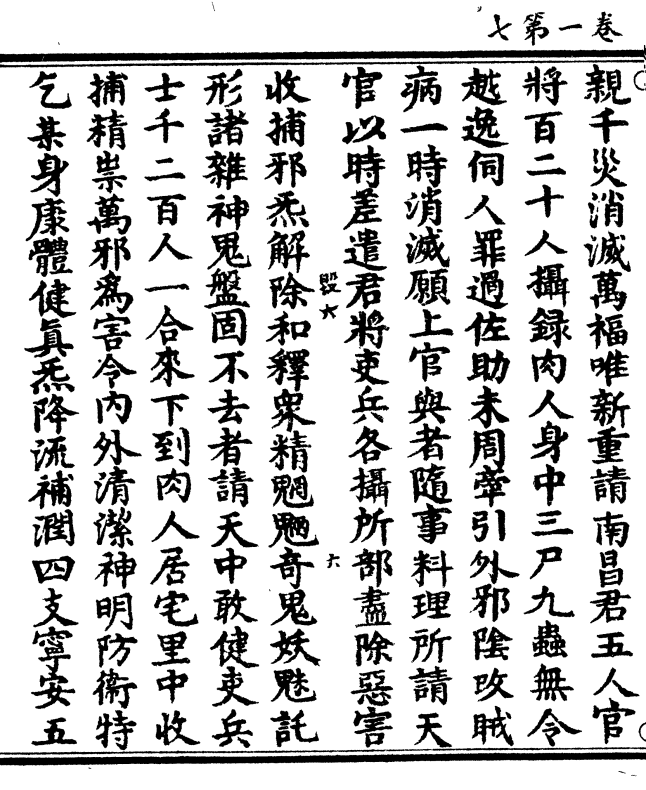 卷一第七
親千災消滅萬福唯新重請南昌君五人官
將百二十人攝録肉人身中三尸九蟲無令
越逸伺人罪過佐助未周牽引外邪陰攻賊
病一時消滅願上官與者隨事料理所請天
官以時差遣君將吏兵各攝所部盡除惡害
毀六
六
收捕邪炁解除和釋衆精魍魎奇鬼妖魅託
形諸雜神鬼盤固不去者請天中敢健吏兵
士千二百人一合來下到肉人居宅里中收
捕精祟萬邪爲害令内外清潔神明防衛特
乞某身康體健真炁降流補潤四支寧安五